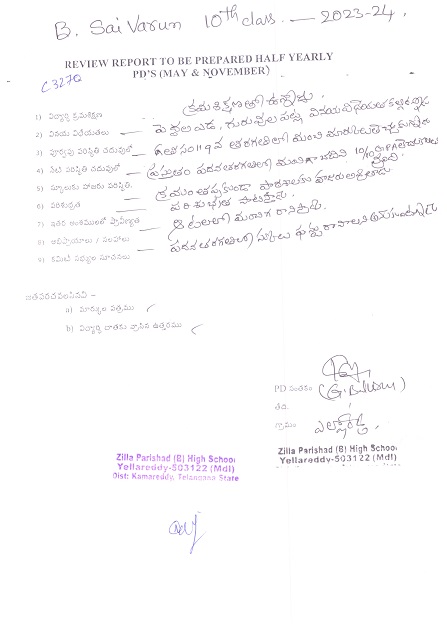 B. Sai Varun 10th class. — 2023-24.
REVIEW REPORT TO BE PREPARED HALF YEARLY
PD'S (MAY & NOVEMBER)
C3270
1) విద్యార్థి క్రమశిక్షణ — క్రమశిక్షణతో ఉన్నాడు.
2) వినయ విధేయతలు — పెద్దల ఎడ, గురువుల పట్ల వినయ విధేయతలు
3) పూర్వపు పరిస్థితి చదువులో — 9వ తరగతిలో మంచి మార్కులు
4) నేటి పరిస్థితి చదువులో — ప్రస్తుతం పదవ తరగతిలో మంచిగా చదివి 10/10
5) స్కూలుకు హాజరు పరిస్థితి. — క్రమం తప్పకుండా పాఠశాలకు హాజరు
6) పరిశుభ్రత — పరిశుభ్రత పాటిస్తాడు.
7) ఇతర అంశములలో ప్రావీణ్యత — ఆటలలో మంచిగా రాణిస్తాడు.
8) అభిప్రాయాలు / సలహాలు — పదవ తరగతిలో స్కూలు ఫస్టు రావాలని
9) కమిటీ సభ్యుల సూచనలు
జతపరచవలసినవి –
a) మార్కుల పత్రము ✓
b) విద్యార్థి దాతకు వ్రాసిన ఉత్తరము ✓
PD సంతకం
తేది.
గ్రామం ఎల్లారెడ్డి
Zilla Parishad (B) High School
Yellareddy-503122 (Mdl)
Dist: Kamareddy, Telangana State
Zilla Parishad (B) High School
Yellareddy-503122 (Mdl)